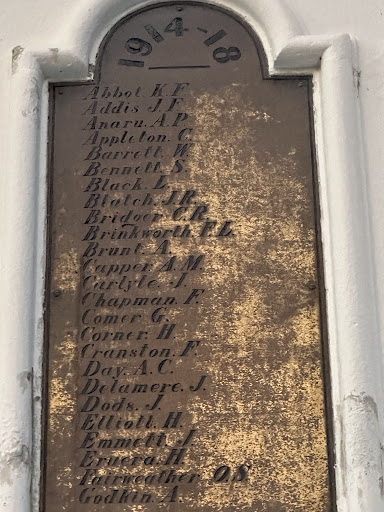 1914-18
Abbot. K.F.
Addis. J.F.
Anaru. A.P.
Appleton. C.
Barrett. W.
Bennett. S.
Black. L.
Blatch. J.R.
Bridger. C.R.
Brinkworth. F.L.
Brunt. A.
Capper. A.M.
Carlyle. J.
Chapman. F.
Comer. G.
Corner. H.
Cranston. F.
Day. A.C.
Delamere. J.
Dods. J.
Elliott. H.
Emmett. J.
Eruera. H.
Fairweather. O.S.
Godkin. A.